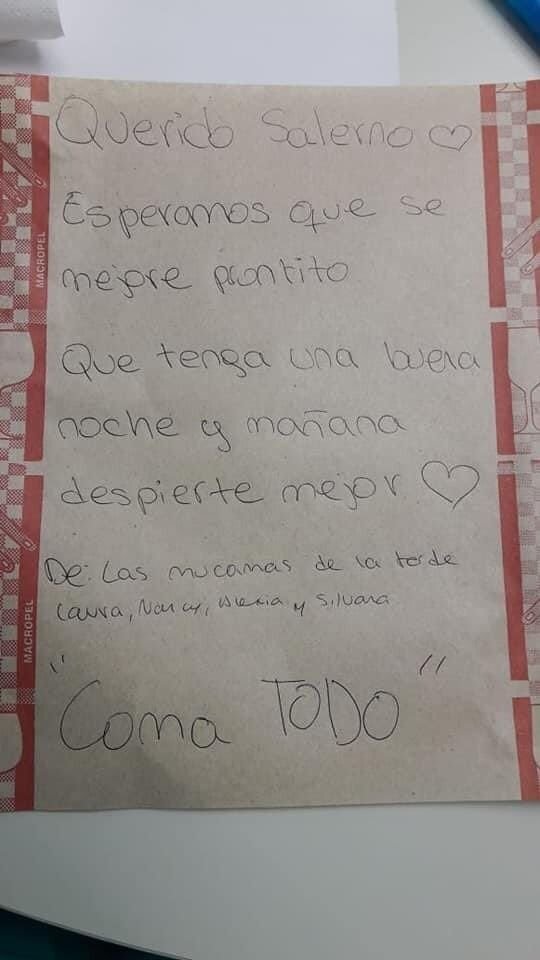 Querido Salerno ♡
Esperamos que se
mejore prontito
Que tenga una buena
noche y mañana
despierte mejor ♡
De: Las mucamas de la tarde
Laura, Nancy, y Silvana
"Coma TODO"
MACROPEL
MACROPEL